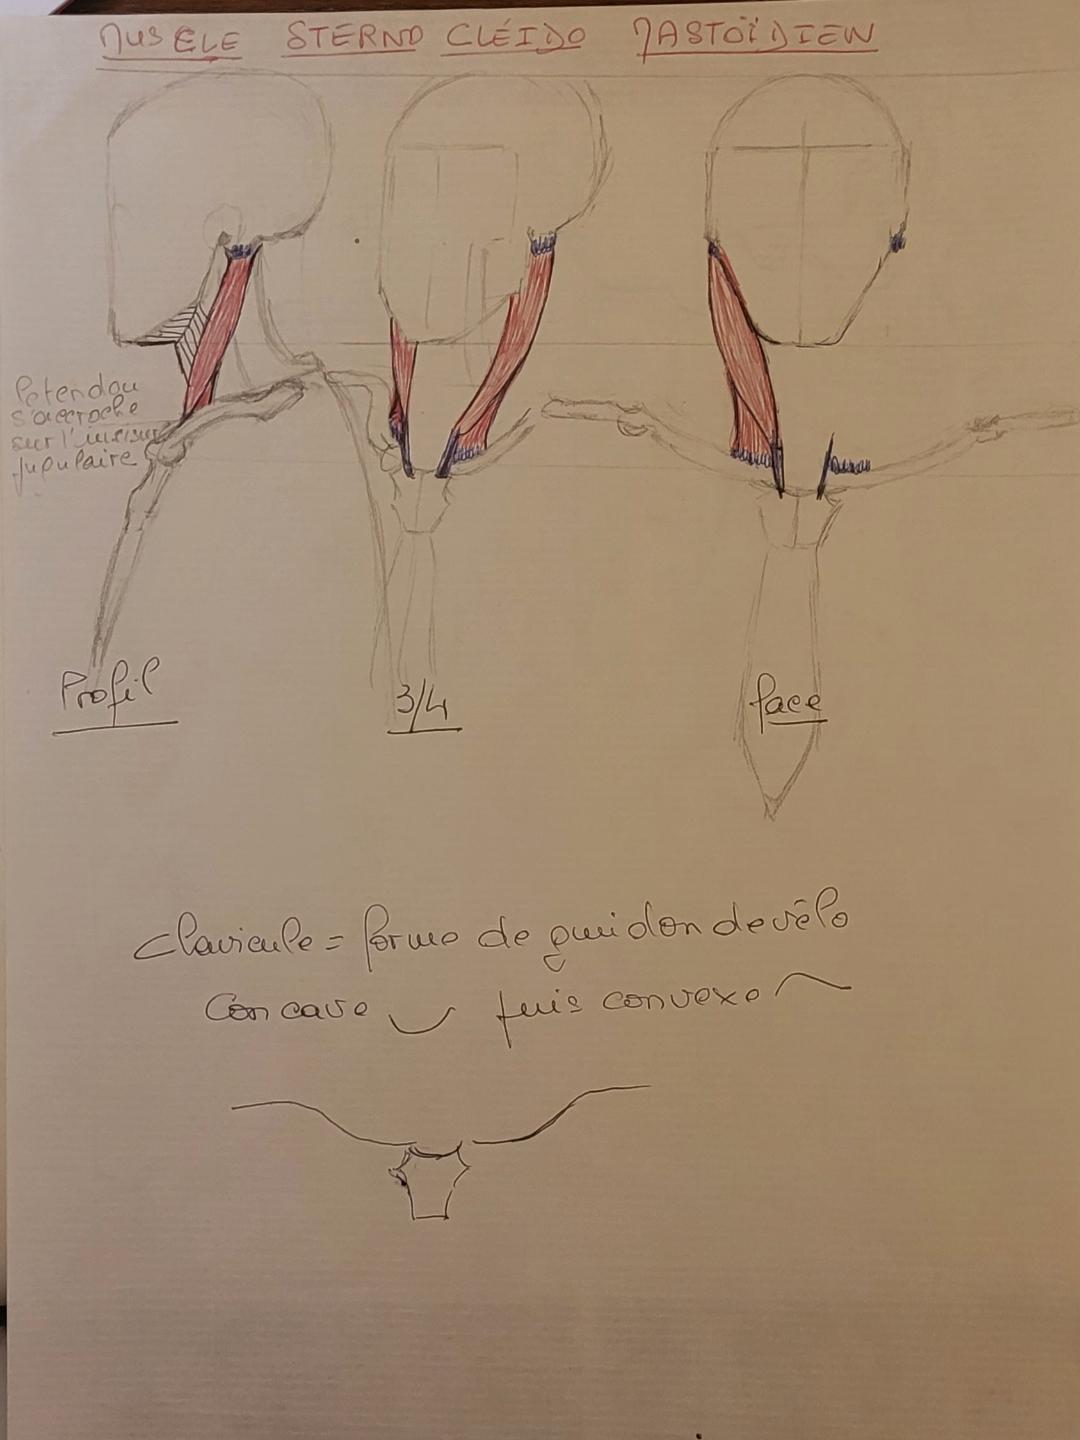 MUSCLE STERNO CLÉIDO MASTOÏDIEN
le tendon
s'accroche
sur l'incisure
jugulaire
Profil
3/4
face
Clavicule = forme de guidon de vélo
Concave puis convexe